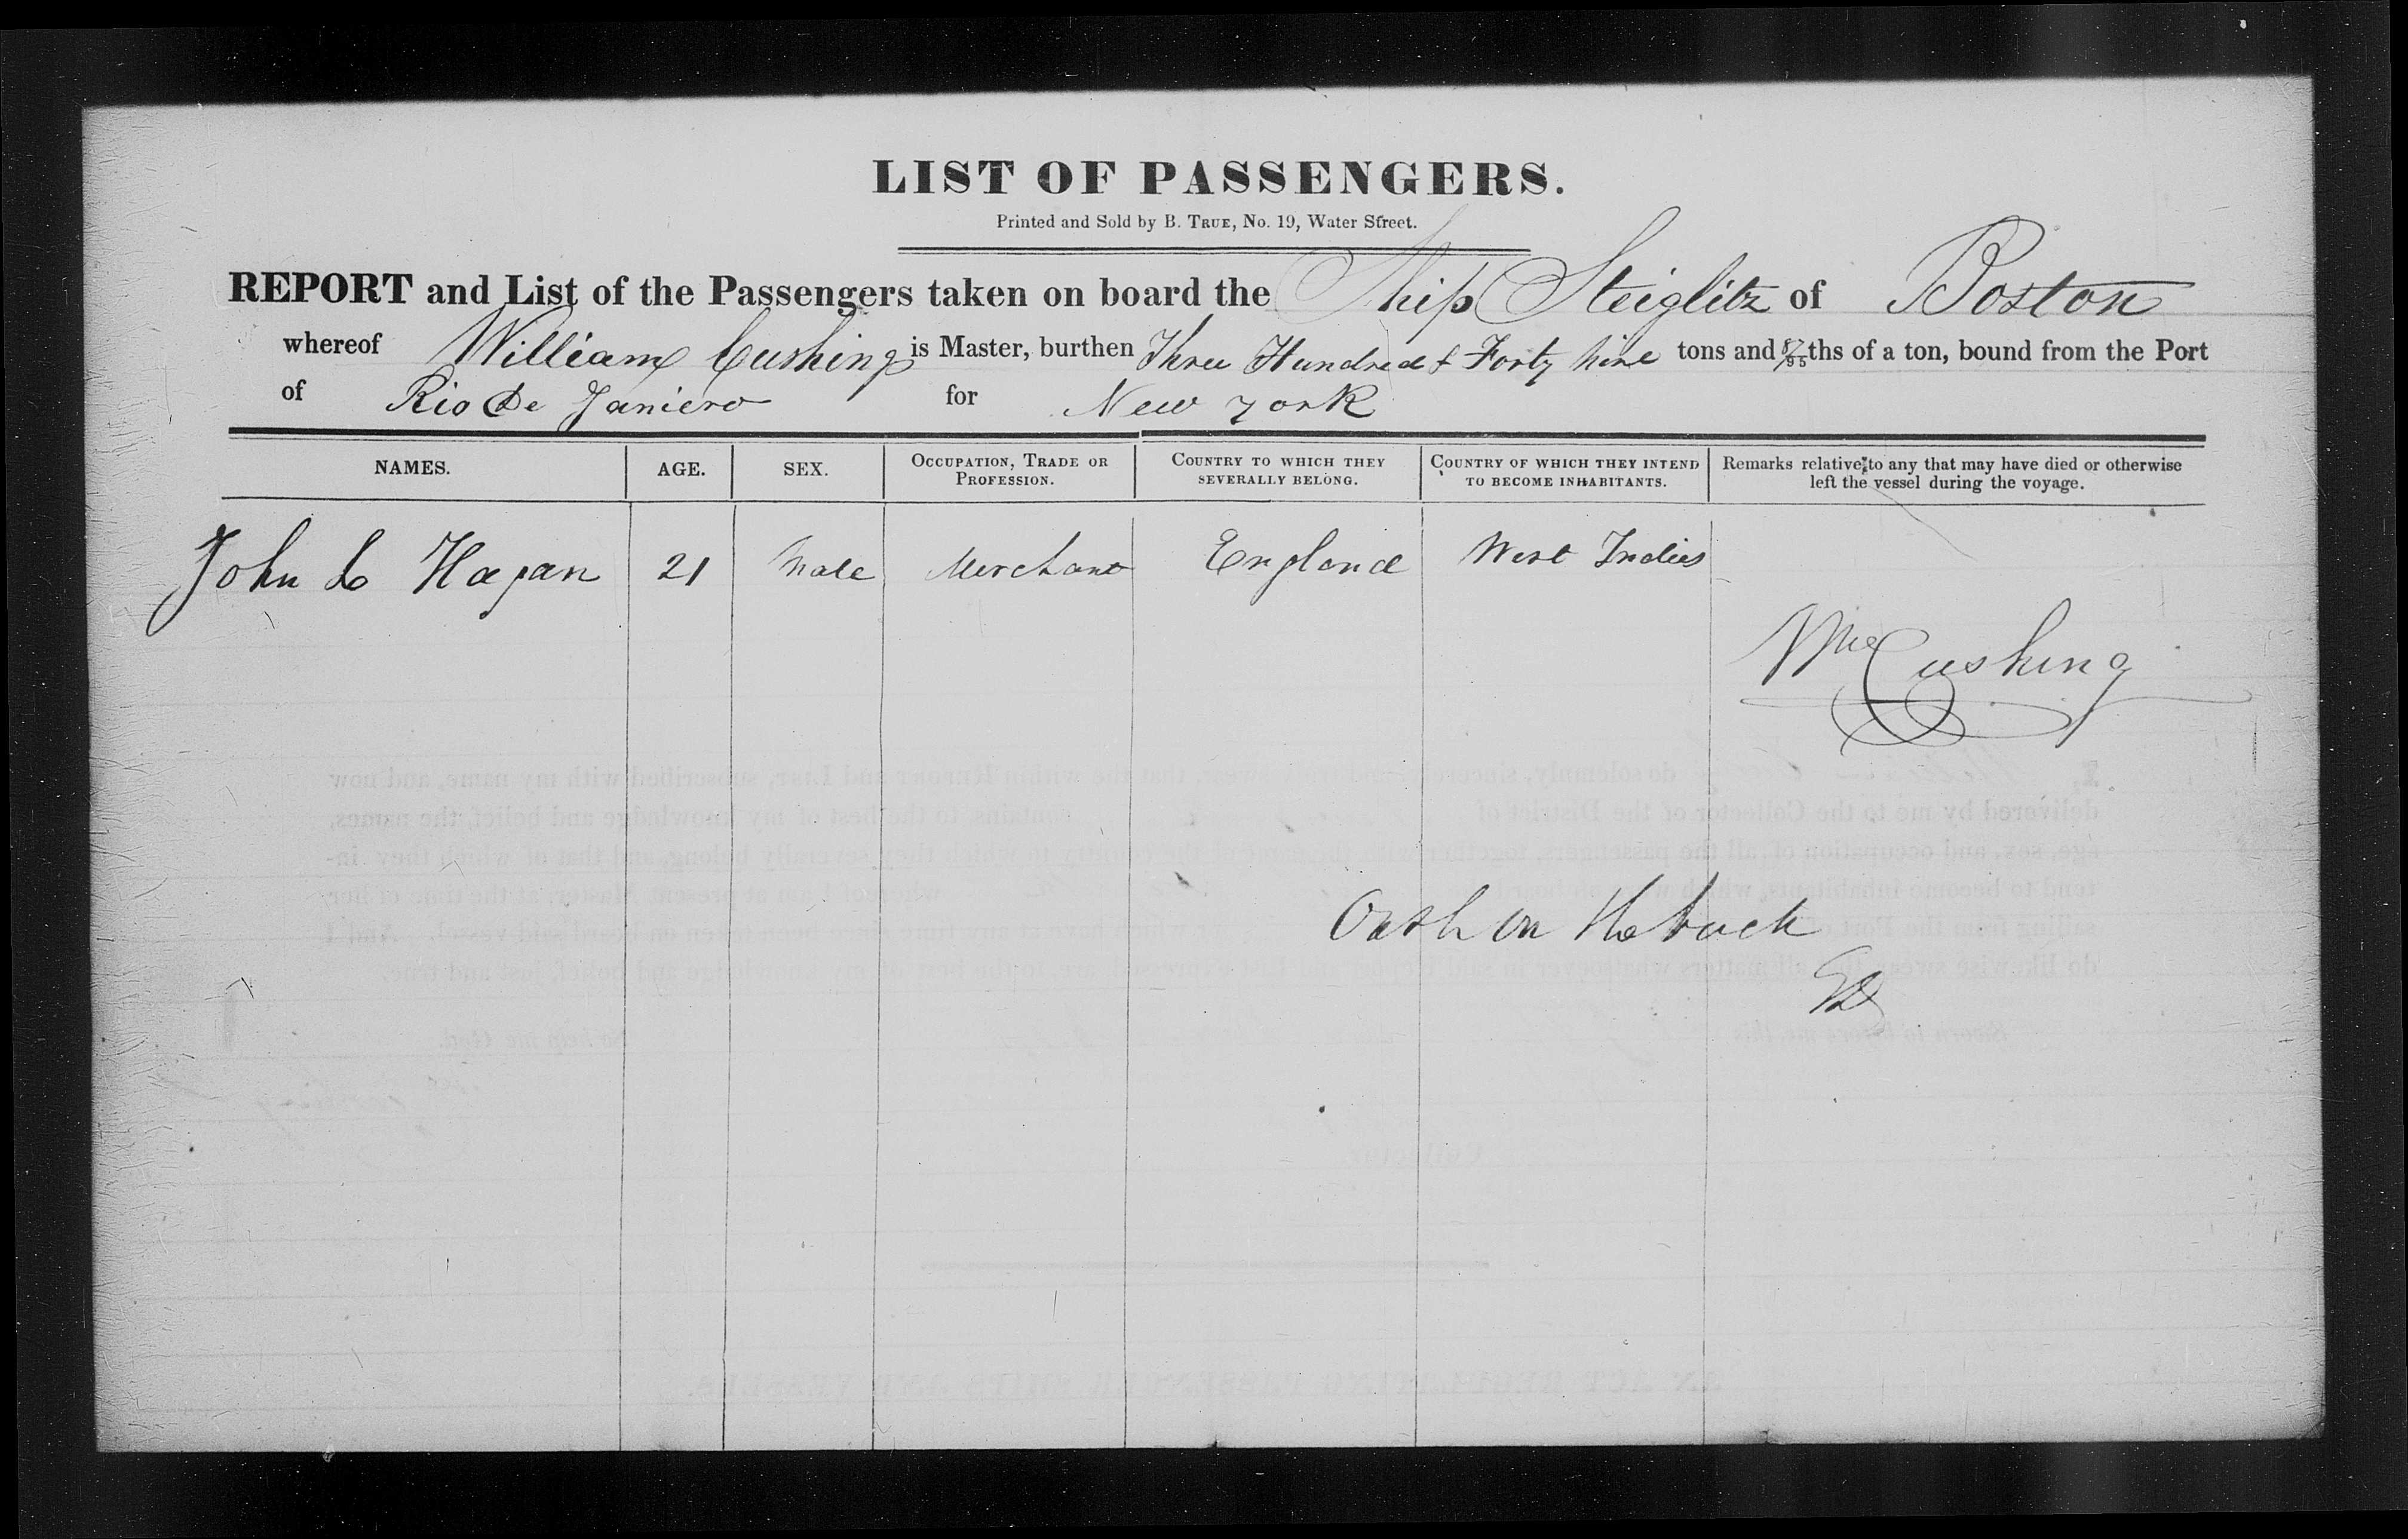 LIST OF PASSENGERS.
Printed and Sold by B. TRUE, No. 19, Water Street.
REPORT and List of the Passengers taken on board the Ship Steiglitz of Boston
whereof William Cushing is Master, burthen Three Hundred & Forty Nine tons and /95ths of a ton, bound from the Port
of Rio De Janiero for New York
NAMES. AGE. SEX. OCCUPATION, TRADE OR PROFESSION. COUNTRY TO WHICH THEY SEVERALLY BELONG. COUNTRY OF WHICH THEY INTEND TO BECOME INHABITANTS. Remarks relative to any that may have died or otherwise left the vessel during the voyage.
John L Hagan 21 Male Merchant England West Indies
Wm Cushing
Oath on the back